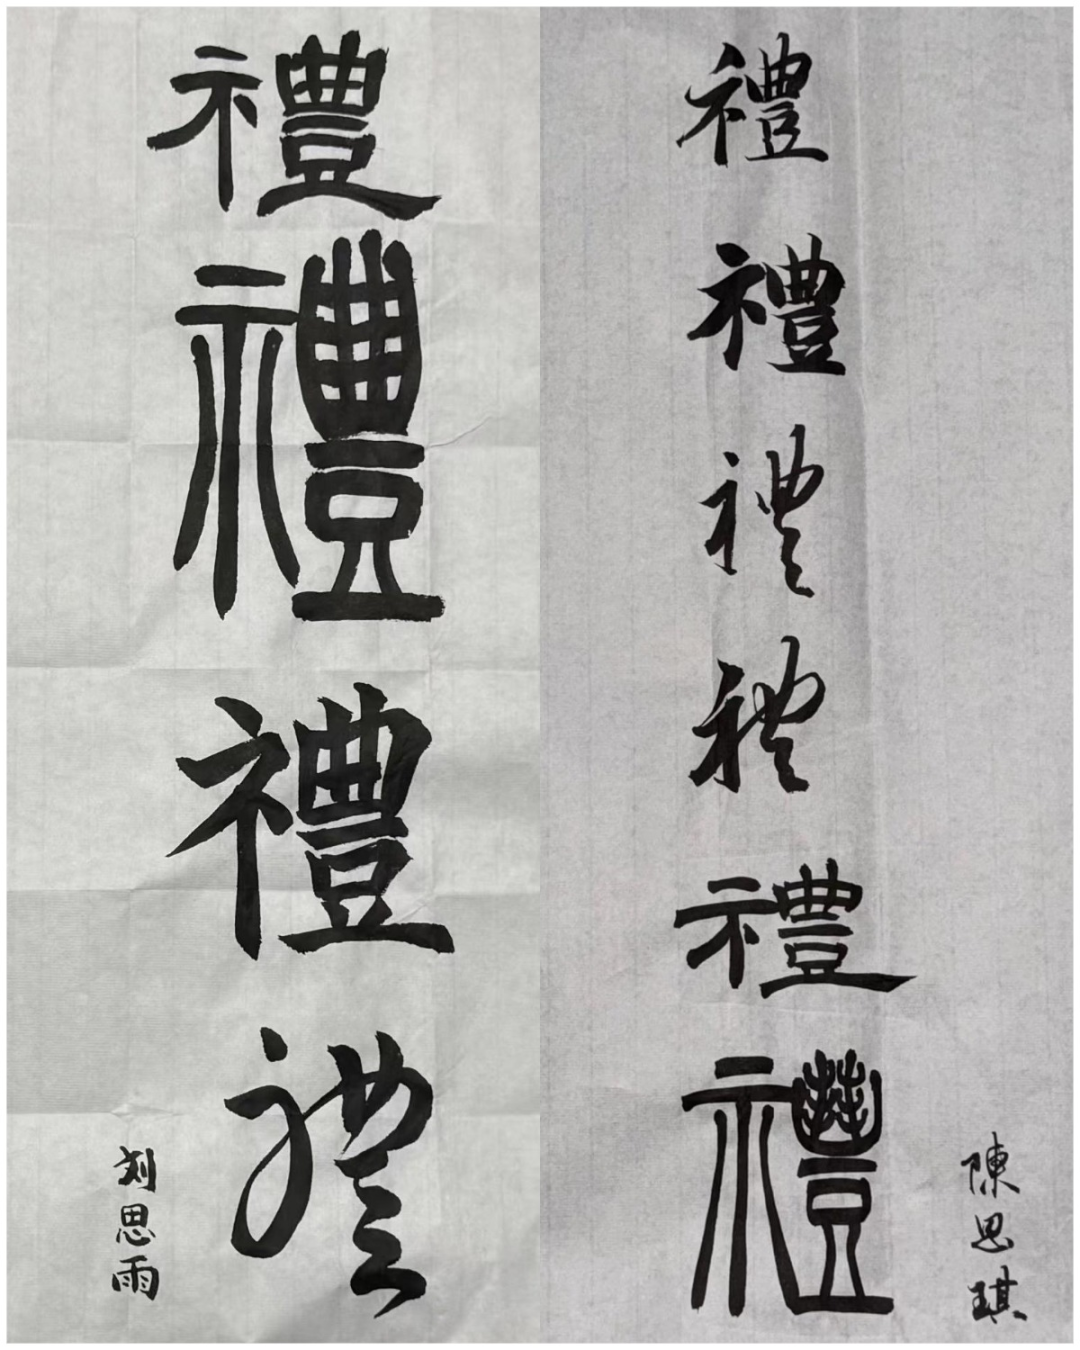 禮
禮
禮
禮
刘思雨
禮
禮
禮
禮
禮
禮
陳思琪